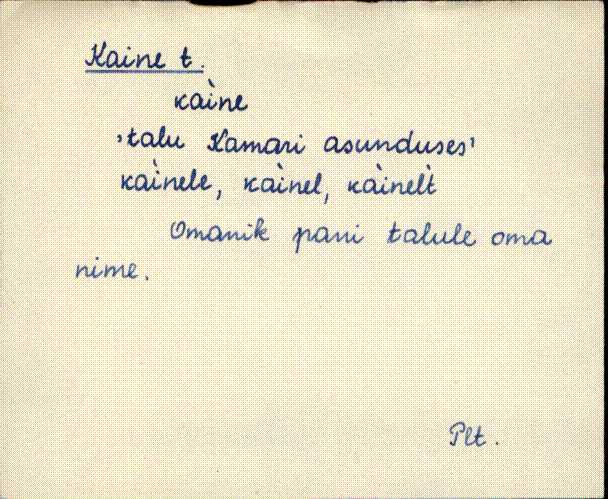 Kaine t.
kaìne
'talu Kamari asunduses'
kaìnele, kaìnel, kaìnel̀t
Omanik pani talule oma
nime.
Plt.